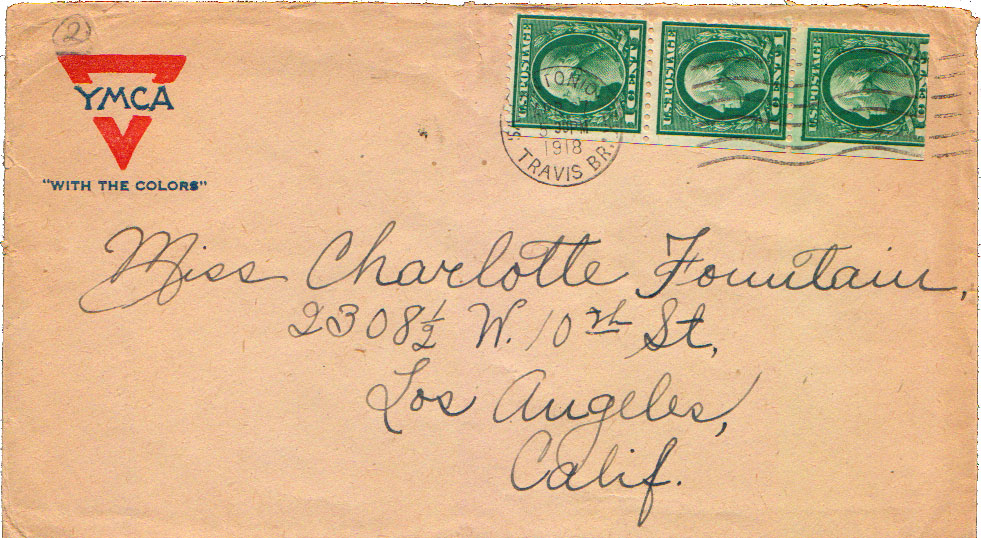 2
YMCA
"WITH THE COLORS"
U.S. POSTAGE 1 CENT 1
U.S. POSTAGE 1 CENT 1
U.S. POSTAGE 1 CENT 1
TONIO
1918
TRAVIS BR.
Miss Charlotte Fountain,
2308½ W. 10th St,
Los Angeles,
Calif.